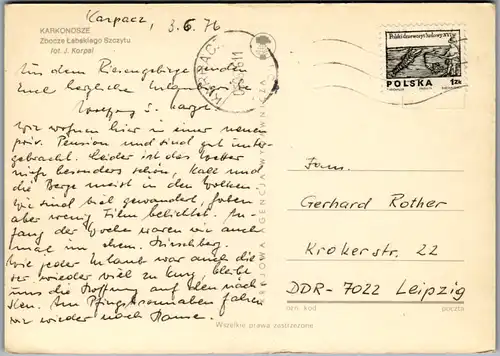 Karpacz, 3.6.76
KARKONOSZE
Zbocze Łabskiego Szczytu
fot. J. Korpal
Aus dem Riesengebirge senden
Euch herzliche Urlaubsgrüße
Wolfgang
Wir wohnen hier in einer neuen
priv. Pension und sind gut unter-
gebracht. Leider ist das Wetter
nicht besonders schön, kalt und
die Berge meist in den Wolken.
Wir sind viel gewandert, haben
aber wenig Film belichtet. An-
fang der Woche waren wir auch
mal im ehem. Hirschberg.
Wie jeder Urlaub war auch die-
ser wieder viel zu kurz, bleibt
uns die Hoffnung auf den näch-
sten. Am Pfingstsonnabend fahren
wir wieder nach Hause.
KRAJOWA AGENCJA WYDAWNICZA
KARPACZ
Polski drzeworyt ludowy XVI w.
POLSKA 1zł
Fam.
Gerhard Rother
Krokerstr. 22
DDR-7022 Leipzig
ozn. kod
poczta
Wszelkie prawa zastrzeżone